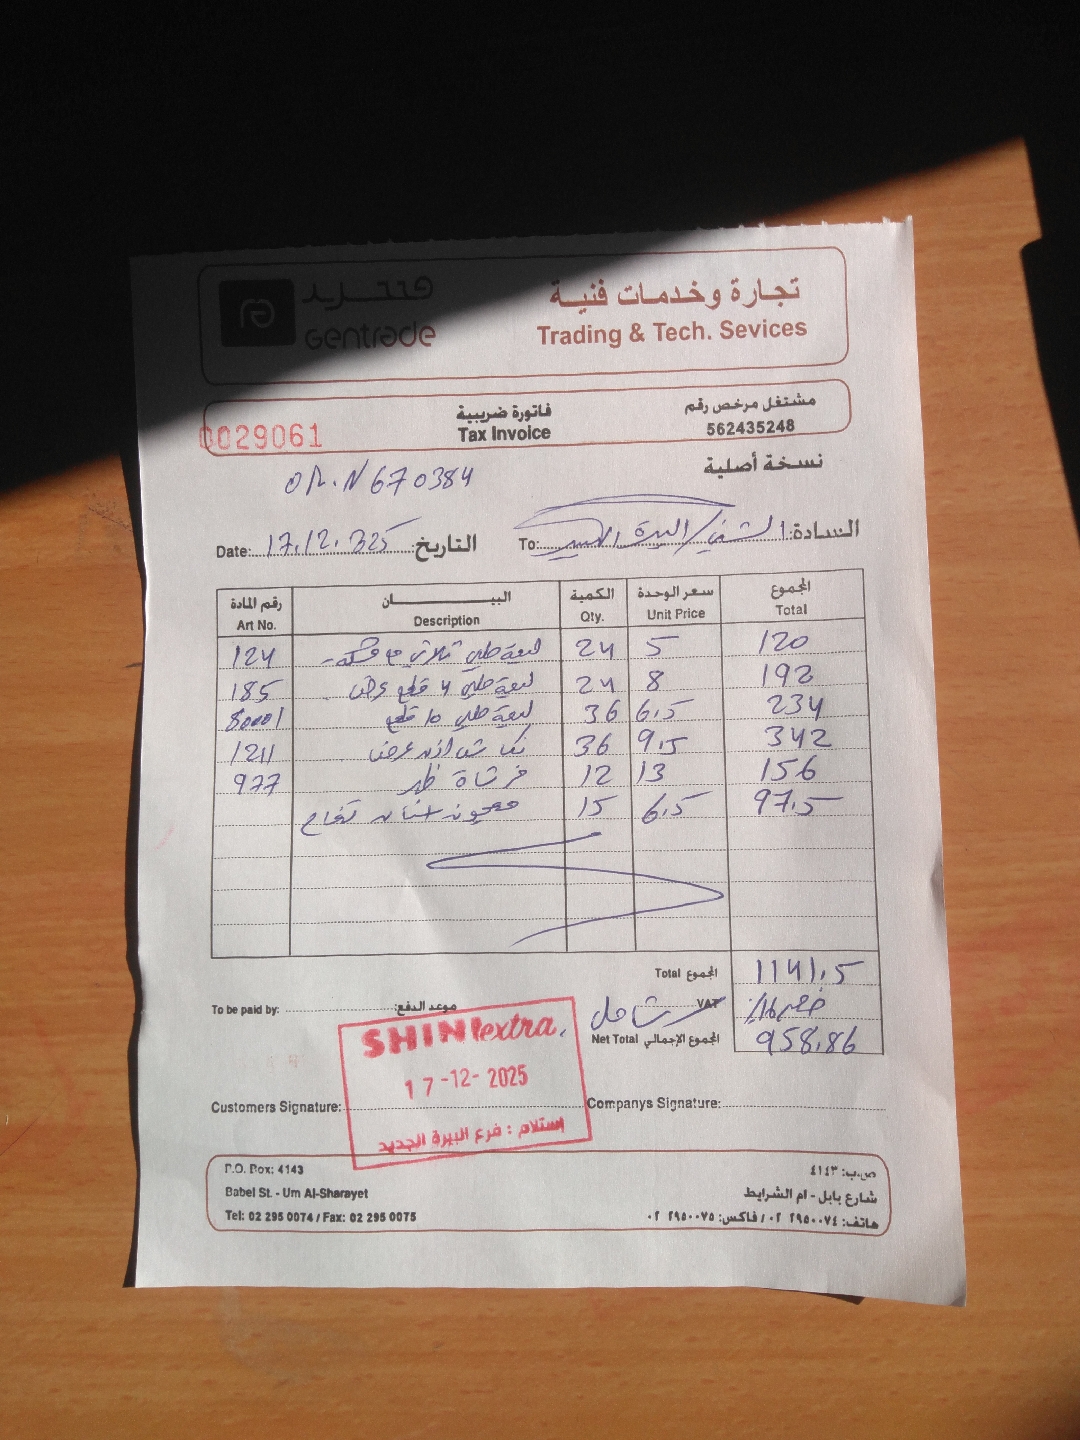 جنتريد
Gentrade
تجارة وخدمات فنية
Trading & Tech. Sevices
فاتورة ضريبية
Tax Invoice
مشتغل مرخص رقم
562435248
0029061
نسخة أصلية
OR.N 670384
Date: 17.12.325 التاريخ:
To: الشني/البيرة السادة:
رقم المادة البيـــــــان الكمية سعر الوحدة المجموع
Art No. Description Qty. Unit Price Total
124 ليفة طبي ثلاثي مع 24 5 120
185 ليفة طبي 4 قطع 24 8 192
80001 ليفة طبي 10 قطع 36 6.5 234
1211 اذن 36 9.5 342
977 فرشاة ظهر 12 13 156
معجون اسنان تفاح 15 6.5 97.5
Total المجموع 1141.5
To be paid by: موعد الدفع:
شامل VAT خصم 16%
Net Total المجموع الإجمالي 958.86
SHINI extra
17-12-2025
استلام : فرع البيرة الجديد
Customers Signature: Companys Signature:
P.O. Box: 4143
Babel St. - Um Al-Sharayet
Tel: 02 295 0074 / Fax: 02 295 0075
ص.ب: ٤١٤٣
شارع بابل - ام الشرايط
هاتف: ٢٩٥٠٠٧٤ ٠٢ / فاكس: ٢٩٥٠٠٧٥ ٠٢